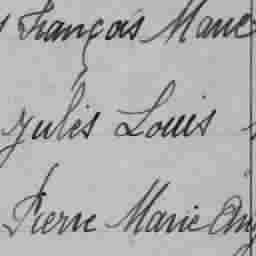 François Marie
Jules Louis
Pierre Marie